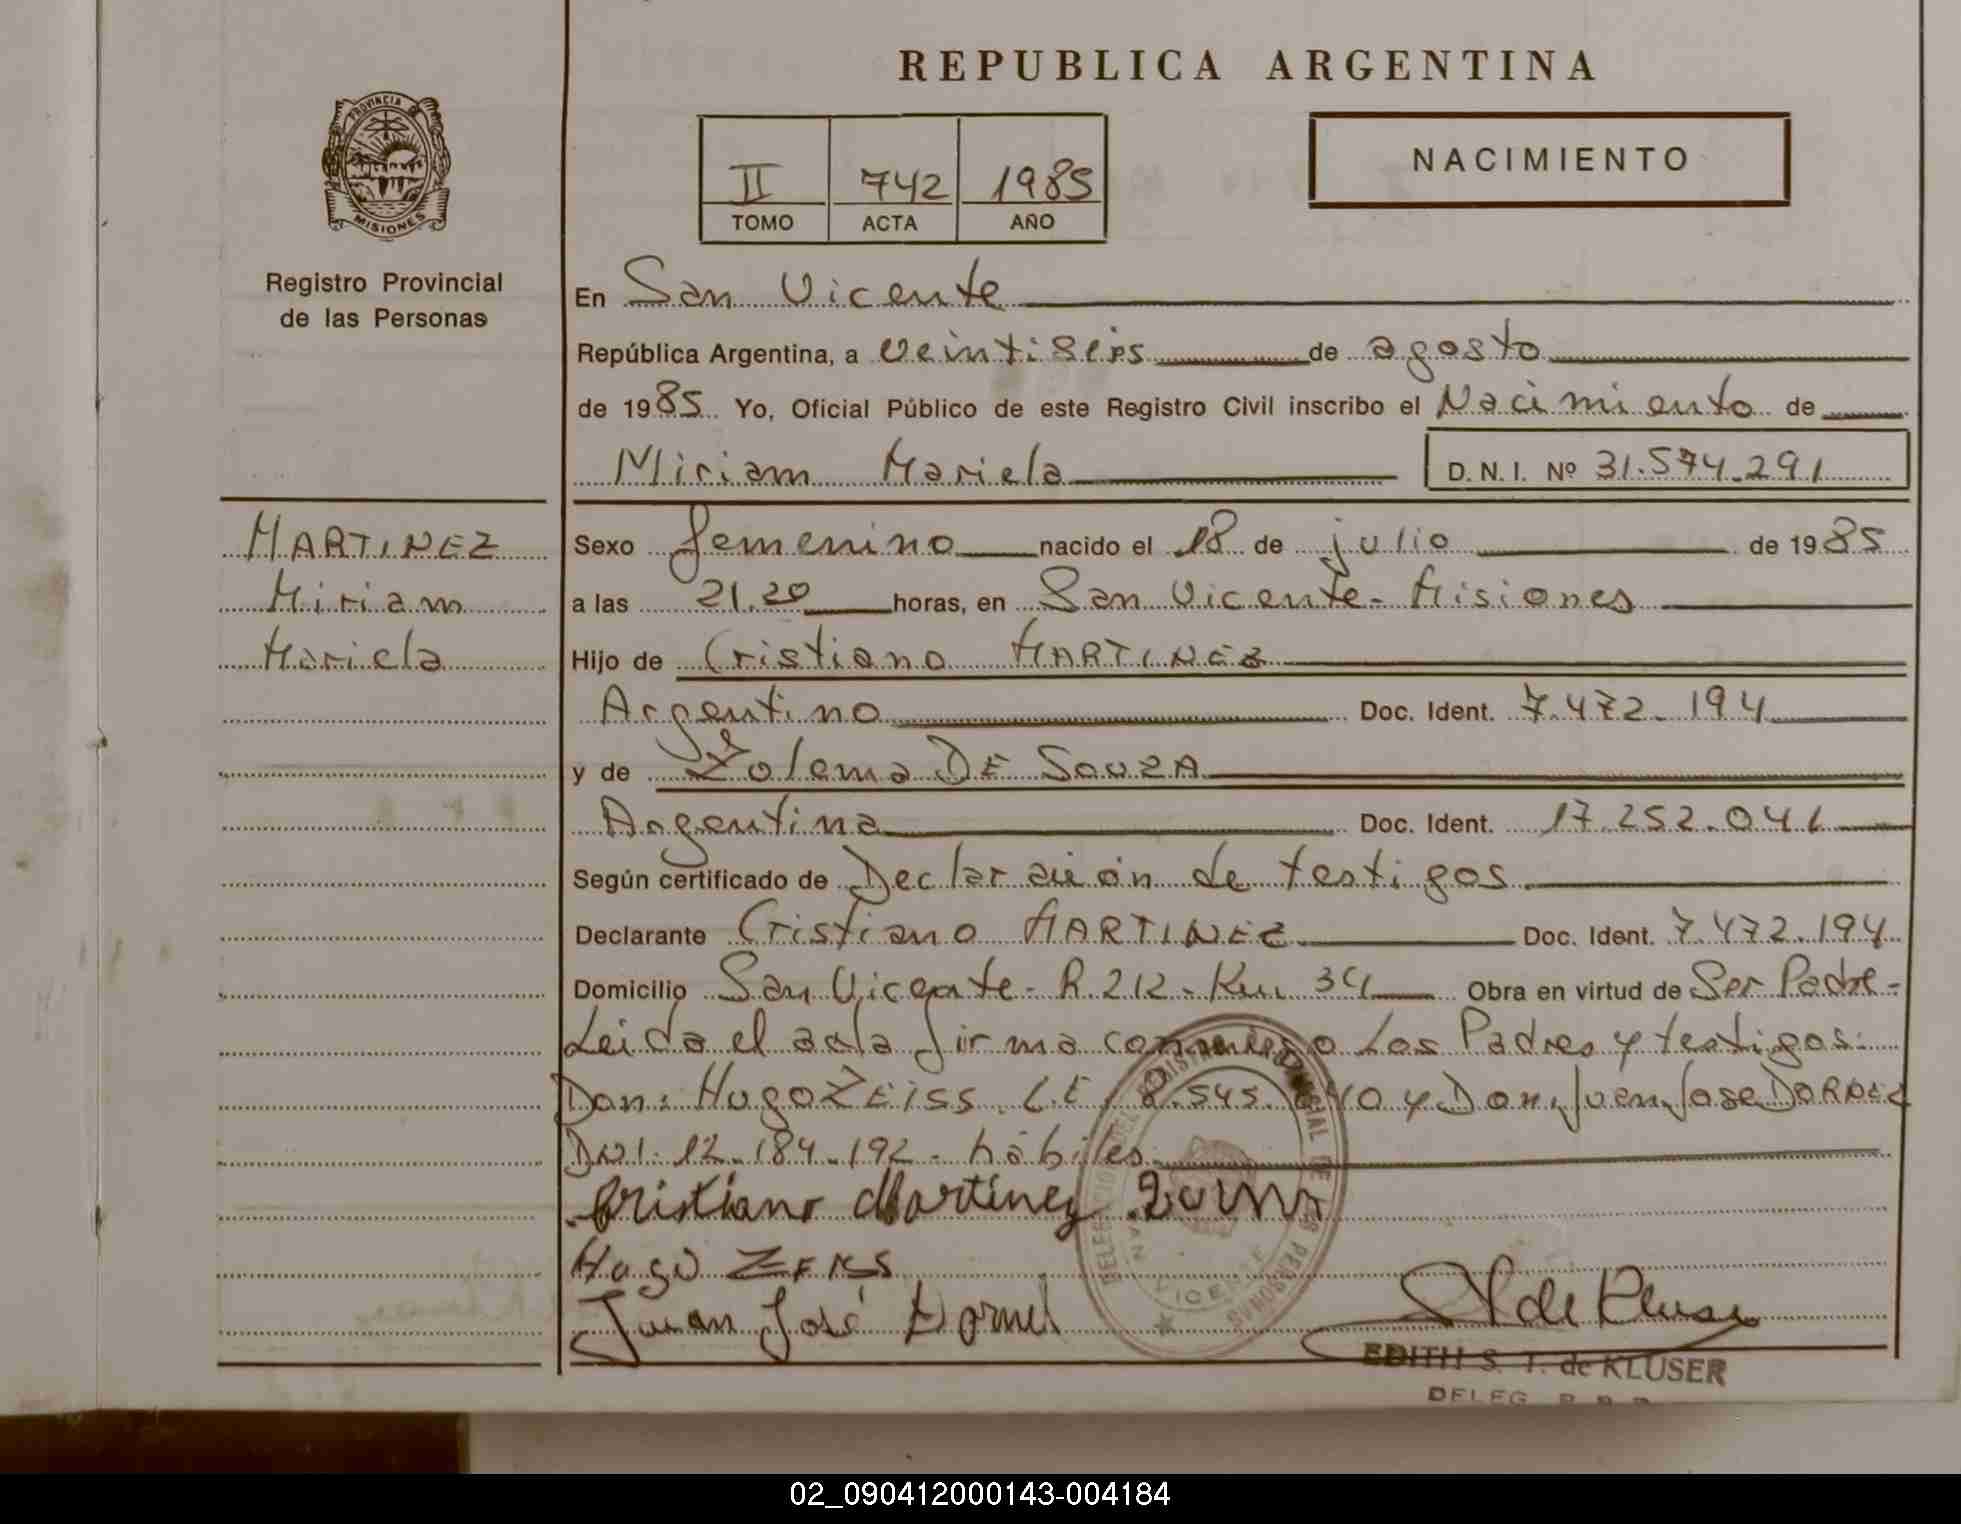 REPUBLICA ARGENTINA
PROVINCIA DE
MISIONES
Registro Provincial
de las Personas
II 742 1985
TOMO ACTA AÑO
NACIMIENTO
En San Vicente
República Argentina, a veintiseis de agosto
de 1985 Yo, Oficial Público de este Registro Civil inscribo el Nacimiento de
Miriam Mariela D. N. I. Nº 31.574.291
MARTINEZ
Miriam
Mariela
Sexo femenino nacido el 18 de julio de 1985
a las 21.20 horas, en San Vicente - Misiones
Hijo de Cristiano MARTINEZ
Argentino Doc. Ident. 7.472.194
y de Zolema DE SOUZA
Argentina Doc. Ident. 17.252.041
Según certificado de Declaración de testigos
Declarante Cristiano MARTINEZ Doc. Ident. 7.472.194
Domicilio San Vicente - R.212 - Km 34 Obra en virtud de Ser Padre -
Leida el acta firma conmigo Los Padres y testigos:
Don: Hugo ZEISS L.E. 8.545. y Don, Juan Jose
DNI. 12.184.192 - hábiles
Cristiano Martinez
Hugo ZEISS
Juan José
DELEGACIO DEL REGISTRO PROVINCIAL DE LAS PERSONAS
SAN VICENTE
de Kluser
EDITH S. T. de KLUSER
DELEG. R. P. P.
02_090412000143-004184